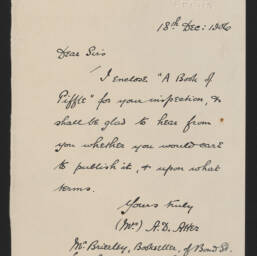 18th Dec: 1906
Dear Sirs
I enclose "A Book of
Piffle" for your inspection, &
shall be glad to hear from
you whether you would care
to publish it, & upon what
terms.
Yours truly
(Mrs) A.D. Atter
Mr Brierley, Bookseller, of Bond St.